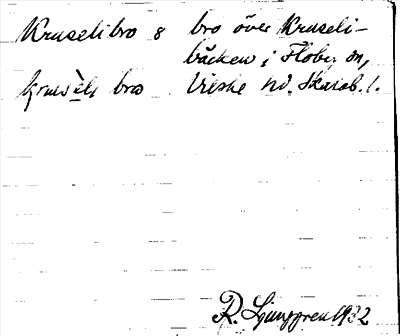 Kruselibro s bro över Kruseli-
bäcken i Floby sn,
krusèli bro Vilske hd. Skarab. l.
R. Ljunggren 1932